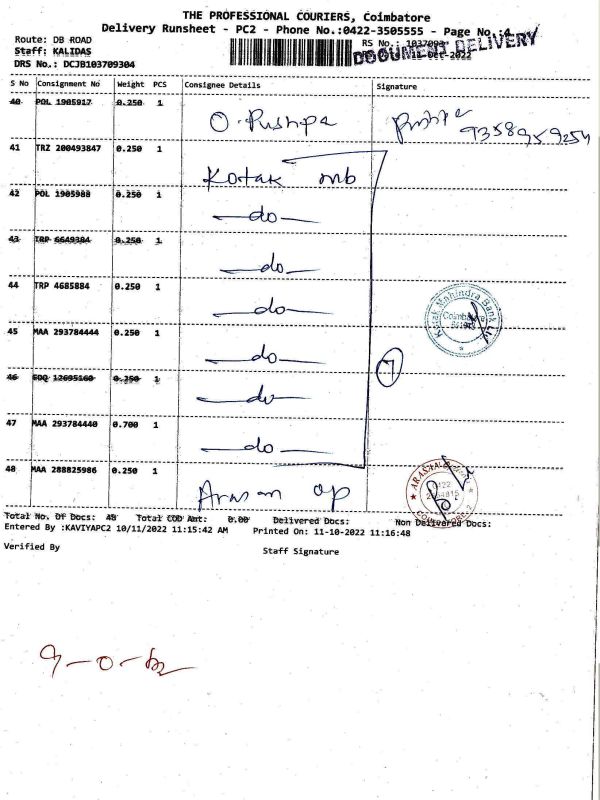 THE PROFESSIONAL COURIERS, Coimbatore
Delivery Runsheet - PC2 - Phone No.:0422-3505555 - Page No.:4
Route: DB ROAD
RS No.: 1037093
DOCUMENT DELIVERY
Staff: KALIDAS
-2022
DRS No.: DCJB103709304
S No Consignment No Weight PCS Consignee Details Signature
40 POL 1905917 0.250 1 O. Pushpa
41 TRZ 200493847 0.250 1 Kotak mb
42 POL 1905988 0.250 1 do
43 TRP 6649384 0.250 1 do
44 TRP 4685884 0.250 1 do
Kotak Mahindra Bank Ltd
Coimbatore
45 MAA 293784444 0.250 1 do
7
46 EDQ 12695160 0.250 1 do
47 MAA 293784440 0.700 1 do
48 MAA 288825986 0.250 1 Arasan op
0422
COIMBATORE-2
Total No. Of Docs: 48 Total COD Amt: 0.00 Delivered Docs: Non Delivered Docs:
Entered By :KAVIYAPC2 10/11/2022 11:15:42 AM Printed On: 11-10-2022 11:16:48
Verified By Staff Signature